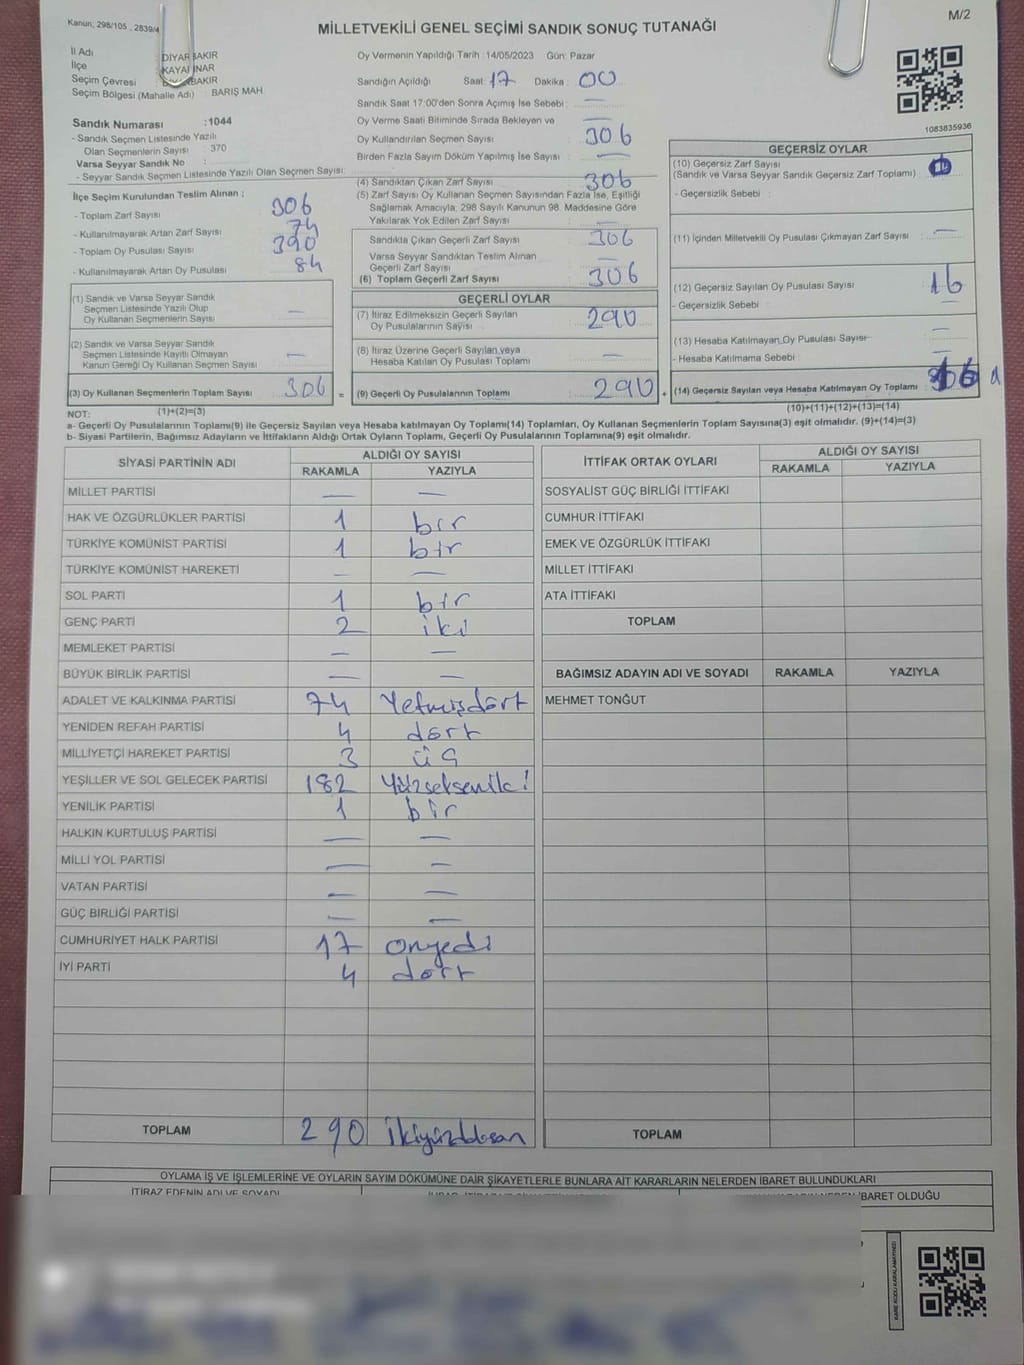 Kanun; 298/105 , 2839/4
MİLLETVEKİLİ GENEL SEÇİMİ SANDIK SONUÇ TUTANAĞI
M/2
İl Adı DİYARBAKIR
İlçe KAYAPINAR
Seçim Çevresi
Seçim Bölgesi (Mahalle Adı) : BARIŞ MAH
Sandık Numarası :1044
- Sandık Seçmen Listesinde Yazılı
Olan Seçmenlerin Sayısı : 370
Varsa Seyyar Sandık No :
- Seyyar Sandık Seçmen Listesinde Yazılı Olan Seçmen Sayısı:
İlçe Seçim Kurulundan Teslim Alınan ;
- Toplam Zarf Sayısı 306
- Kullanılmayarak Artan Zarf Sayısı 74
- Toplam Oy Pusulası Sayısı 390
- Kullanılmayarak Artan Oy Pusulası 84
(1) Sandık ve Varsa Seyyar Sandık
Seçmen Listesinde Yazılı Olup
Oy Kullanan Seçmenlerin Sayısı —
(2) Sandık ve Varsa Seyyar Sandık
Seçmen Listesinde Kayıtlı Olmayan
Kanun Gereği Oy Kullanan Seçmen Sayısı —
(3) Oy Kullanan Seçmenlerin Toplam Sayısı 306 =
Oy Vermenin Yapıldığı Tarih : 14/05/2023 Gün: Pazar
Sandığın Açıldığı Saat: 17 Dakika : 00
Sandık Saat 17:00'den Sonra Açımış İse Sebebi : —
Oy Verme Saati Bitiminde Sırada Bekleyen ve —
Oy Kullandırılan Seçmen Sayısı 306
Birden Fazla Sayım Döküm Yapılmış İse Sayısı : —
(4) Sandıktan Çıkan Zarf Sayısı 306
(5) Zarf Sayısı Oy Kullanan Seçmen Sayısından Fazla İse, Eşitliği
Sağlamak Amacıyla; 298 Sayılı Kanunun 98. Maddesine Göre
Yakılarak Yok Edilen Zarf Sayısı : —
Sandıkta Çıkan Geçerli Zarf Sayısı 306
Varsa Seyyar Sandıktan Teslim Alınan
Geçerli Zarf Sayısı —
(6) Toplam Geçerli Zarf Sayısı 306
GEÇERLİ OYLAR
(7) İtiraz Edilmeksizin Geçerli Sayılan
Oy Pusulalarının Sayısı : 290
(8) İtiraz Üzerine Geçerli Sayılan veya
Hesaba Katılan Oy Pusulası Toplamı —
(9) Geçerli Oy Pusulalarının Toplamı 290 +
1083835936
GEÇERSİZ OYLAR
(10) Geçersiz Zarf Sayısı
(Sandık ve Varsa Seyyar Sandık Geçersiz Zarf Toplamı) :
- Geçersizlik Sebebi :
(11) İçinden Milletvekili Oy Pusulası Çıkmayan Zarf Sayısı —
(12) Geçersiz Sayılan Oy Pusulası Sayısı 16
- Geçersizlik Sebebi : —
(13) Hesaba Katılmayan Oy Pusulası Sayısı —
- Hesaba Katılmama Sebebi : —
(14) Geçersiz Sayılan veya Hesaba Katılmayan Oy Toplamı
NOT: (1)+(2)=(3)
(10)+(11)+(12)+(13)=(14)
a- Geçerli Oy Pusulalarının Toplamı(9) ile Geçersiz Sayılan veya Hesaba katılmayan Oy Toplamı(14) Toplamları, Oy Kullanan Seçmenlerin Toplam Sayısına(3) eşit olmalıdır. (9)+(14)=(3)
b- Siyasi Partilerin, Bağımsız Adayların ve İttifakların Aldığı Ortak Oyların Toplamı, Geçerli Oy Pusulalarının Toplamına(9) eşit olmalıdır.
SİYASİ PARTİNİN ADI ALDIĞI OY SAYISI
RAKAMLA YAZIYLA
MİLLET PARTİSİ — —
HAK VE ÖZGÜRLÜKLER PARTİSİ 1 bir
TÜRKİYE KOMÜNİST PARTİSİ 1 bir
TÜRKİYE KOMÜNİST HAREKETİ — —
SOL PARTİ 1 bir
GENÇ PARTİ 2 iki
MEMLEKET PARTİSİ — —
BÜYÜK BİRLİK PARTİSİ — —
ADALET VE KALKINMA PARTİSİ 74 Yetmişdört
YENİDEN REFAH PARTİSİ 4 dört
MİLLİYETÇİ HAREKET PARTİSİ 3 üç
YEŞİLLER VE SOL GELECEK PARTİSİ 182 Yüzsekseniki
YENİLİK PARTİSİ 1 bir
HALKIN KURTULUŞ PARTİSİ — —
MİLLİ YOL PARTİSİ — —
VATAN PARTİSİ — —
GÜÇ BİRLİĞİ PARTİSİ — —
CUMHURİYET HALK PARTİSİ 17 onyedi
İYİ PARTİ 4 dört
TOPLAM 290 ikiyüzdoksan
İTTİFAK ORTAK OYLARI ALDIĞI OY SAYISI
RAKAMLA YAZIYLA
SOSYALİST GÜÇ BİRLİĞİ İTTİFAKI
CUMHUR İTTİFAKI
EMEK VE ÖZGÜRLÜK İTTİFAKI
MİLLET İTTİFAKI
ATA İTTİFAKI
TOPLAM
BAĞIMSIZ ADAYIN ADI VE SOYADI RAKAMLA YAZIYLA
MEHMET TONĞUT
TOPLAM
OYLAMA İŞ VE İŞLEMLERİNE VE OYLARIN SAYIM DÖKÜMÜNE DAİR ŞİKAYETLERLE BUNLARA AİT KARARLARIN NELERDEN İBARET BULUNDUKLARI
İTİRAZ EDENİN ADI VE SOYADI
İBARET OLDUĞU
KARE KODU KARALAMAYINIZ!